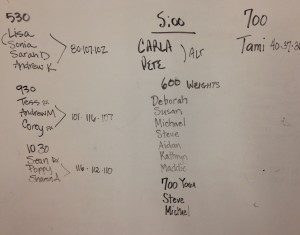 530
Lisa
Sonia
Sarah D
Andrew K
80-107-102
930
Tess
Andrew M
Corey
101-116-
1030
Sean
Poppy
116-112-110
5:00
CARLA
PETE
ALT
600 WEIGHTS
Deborah
Susan
Michael
Steve
Aidan
Kathryn
700 YOGA
Steve
Michael
700
Tami 40-37-